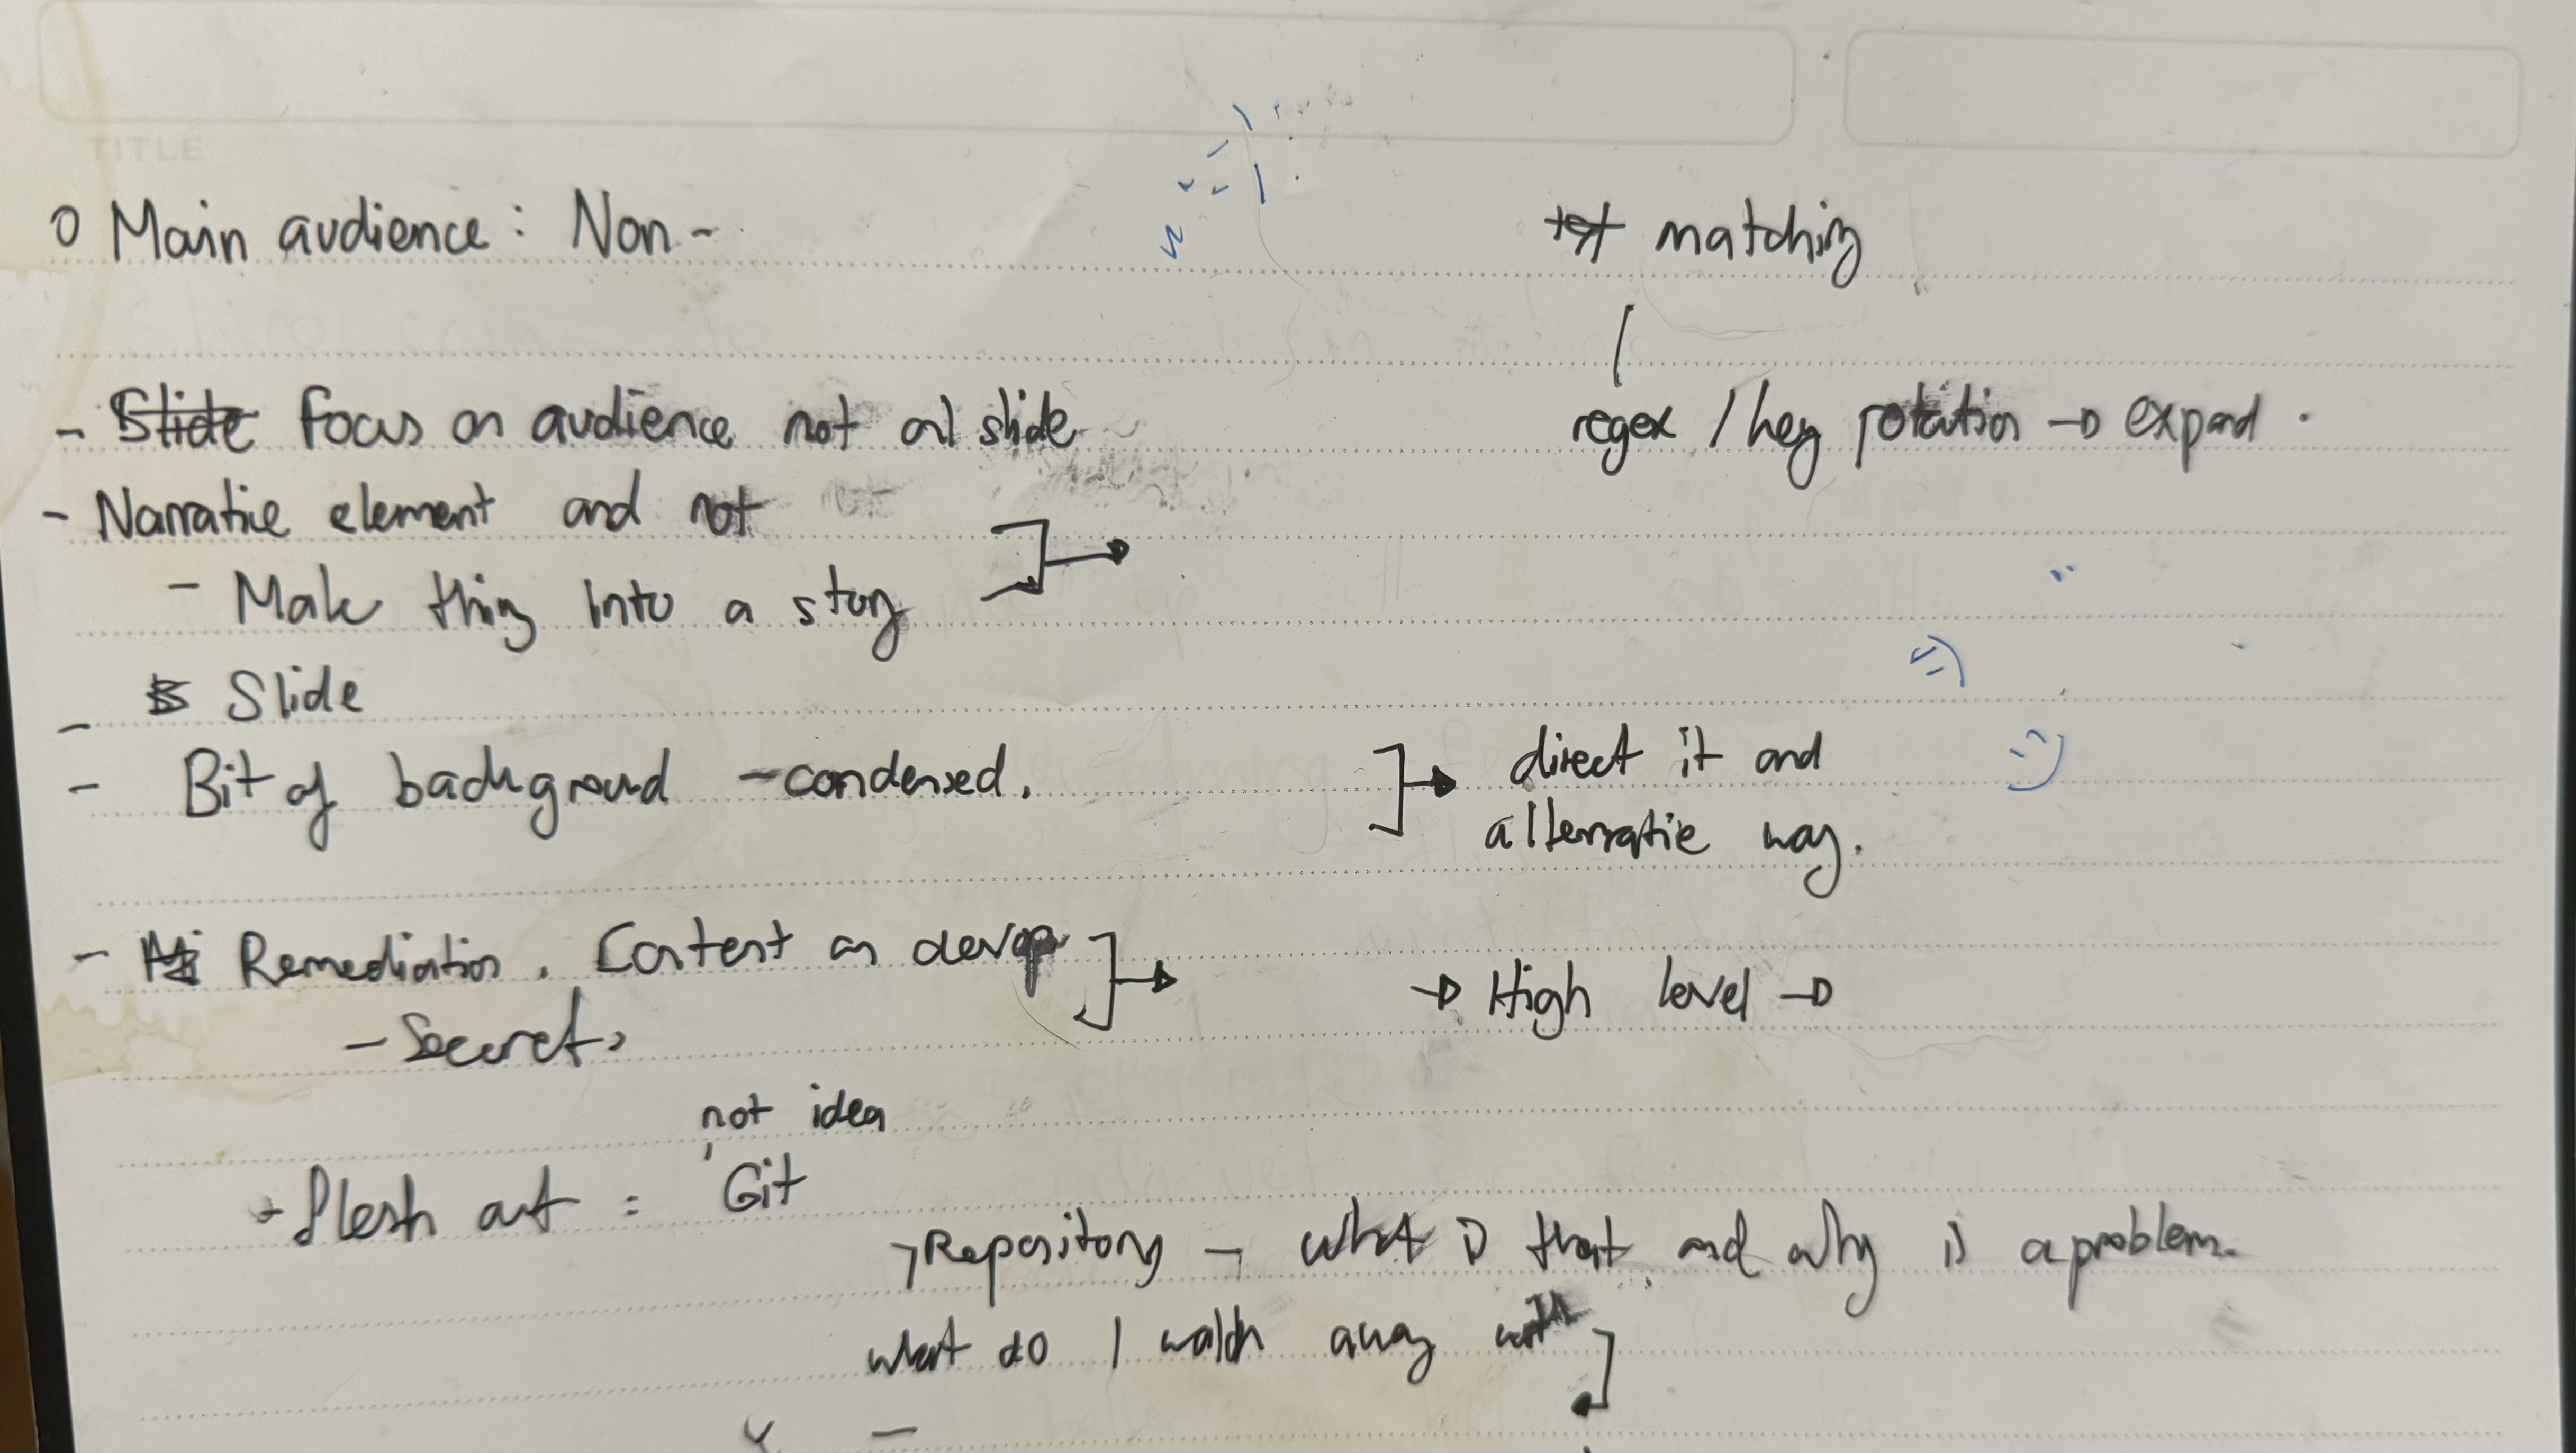 TITLE
o Main audience : Non -
text matching
- Slide focus on audience not on slide
regex / key rotation → expand .
- Narrative element and not
- Make thing into a story
- Slide
- Bit of background - condensed.
direct it and
alternative way.
- Remediation . Content on devop
- Secrets
→ High level →
not idea
- flesh out : Git
→ Repository - what is that and why is a problem.
what do I walch away with